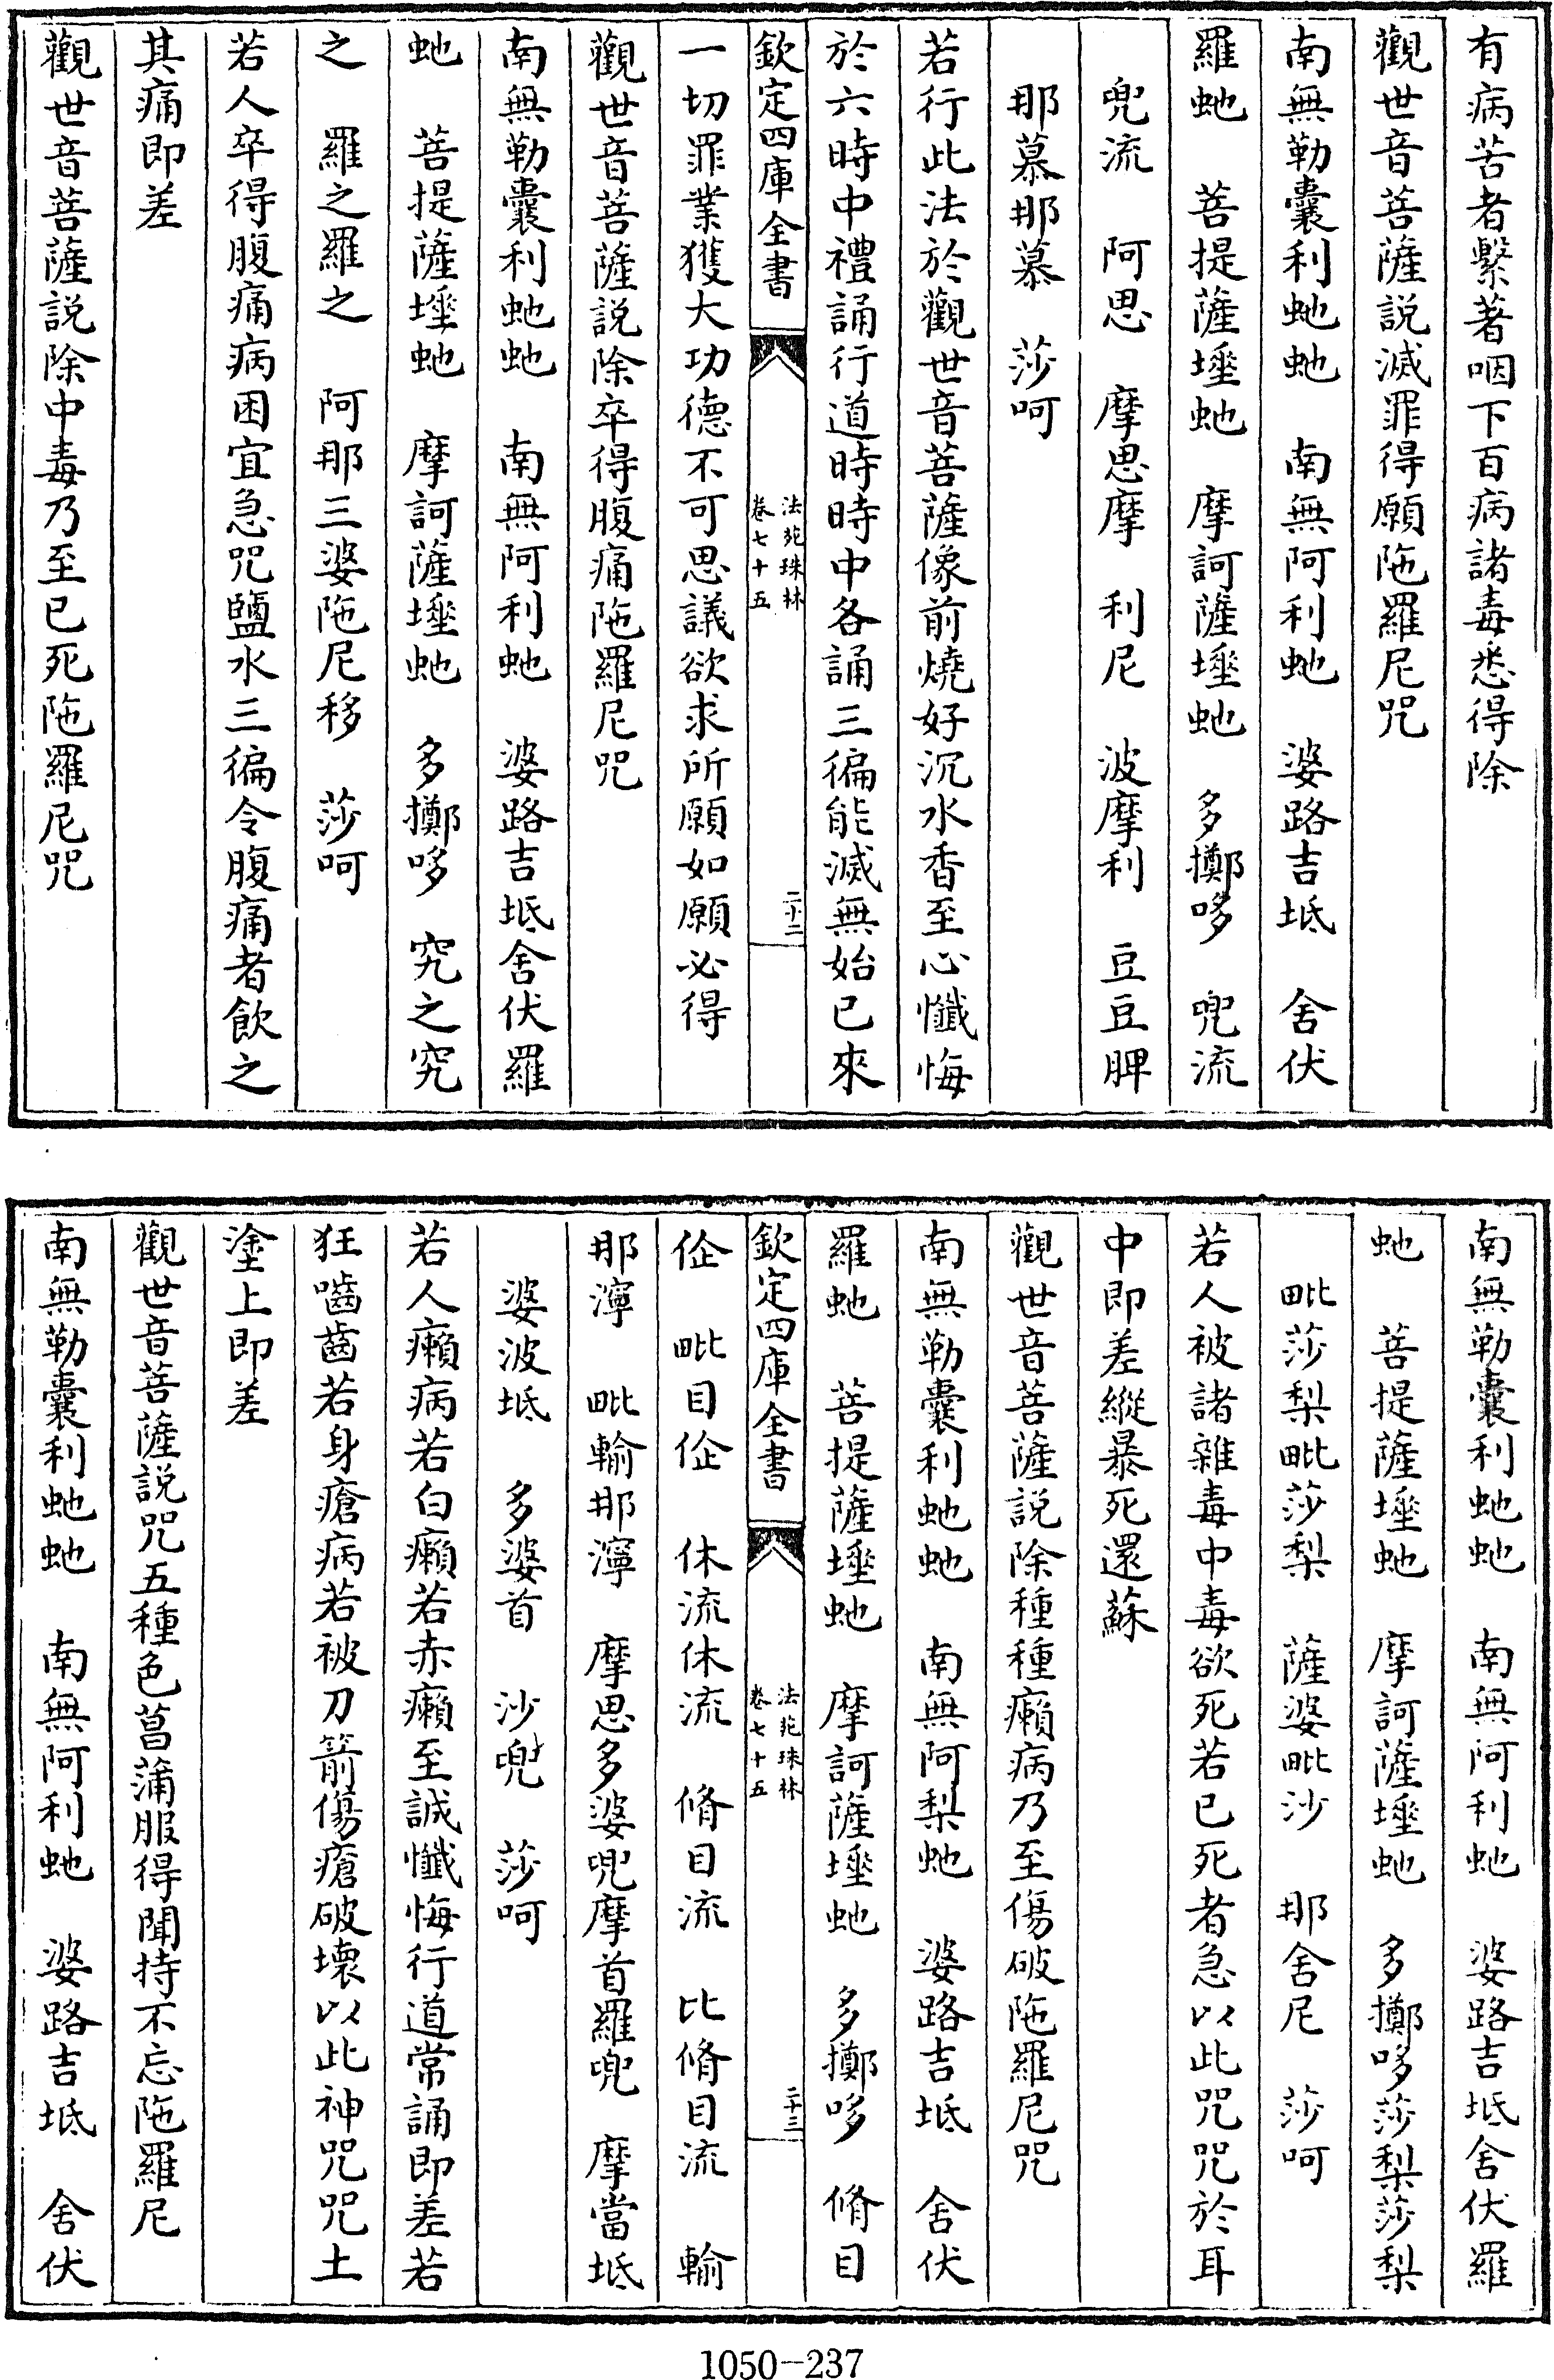 有病苦者繫著咽下百病諸毒悉得除
觀世音菩薩説滅罪得願陁羅尼咒
南無勒囊利虵虵　南無阿利虵　婆路吉坻　舍伏
羅虵　菩提薩埵虵　摩訶薩埵虵　多擲哆　兜流
兜流　阿思　摩思摩　利尼　波摩利　豆豆脾
那慕那慕　莎呵
若行此法於觀世音菩薩像前燒好沉水香至心懺悔
於六時中禮誦行道時時中各誦三徧能滅無始已來
欽定四庫全書
法苑珠林
卷七十五
二十二
一切罪業獲大功德不可思議欲求所願如願必得
觀世音菩薩説除卒得腹痛陁羅尼咒
南無勒囊利虵虵　南無阿利虵　婆路吉坻舍伏羅
虵　菩提薩埵虵　摩訶薩埵虵　多擲哆　究之究
之　羅之羅之　阿那三婆陁尼移　莎呵
若人卒得腹痛病困宜急咒鹽水三徧令腹痛者飲之
其痛即差
觀世音菩薩説除中毒乃至已死陁羅尼咒
南無勒囊利虵虵　南無阿利虵　婆路吉坻舍伏羅
虵　菩提薩埵虵　摩訶薩埵虵　多擲哆莎梨莎梨
毗莎梨毗莎梨　薩婆毗沙　那舍尼　莎呵
若人被諸雜毒中毒欲死若已死者急以此咒咒於耳
中即差縱暴死還蘇
觀世音菩薩説除種種癩病乃至傷破陁羅尼咒
南無勒囊利虵虵　南無阿梨虵　婆路吉坻　舍伏
羅虵　菩提薩埵虵　摩訶薩埵虵　多擲哆　脩目
欽定四庫全書
法苑珠林
卷七十五
二十三
企　毗目企　休流休流　脩目流　比脩目流　輸
那濘　毗輸那濘　摩思多婆兜摩首羅兜　摩當坻
婆波坻　多婆首　沙兜　莎呵
若人癩病若白癩若赤癩至誠懺悔行道常誦即差若
狂嚙齒若身瘡病若被刀箭傷瘡破壞以此神咒咒土
塗上即差
觀世音菩薩説咒五種色菖蒲服得聞持不忘陁羅尼
南無勒囊利虵虵　南無阿利虵　婆路吉坻　舍伏
1050-237